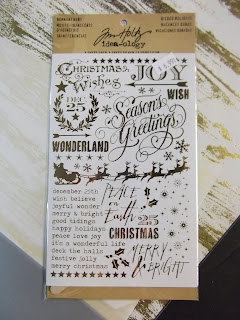 Tim Holtz
idea-ology
CHRISTMAS
Wishes
JOY
WISH
DEC
25
Season's
Greetings
WONDERLAND
december 25th
wish believe
joyful wonder
merry & bright
good tidings
happy holidays
peace love joy
it's a wonderful life
deck the halls
festive jolly
merry christmas
PEACE
on
Earth
25
CHRISTMAS
MERRY
& BRIGHT